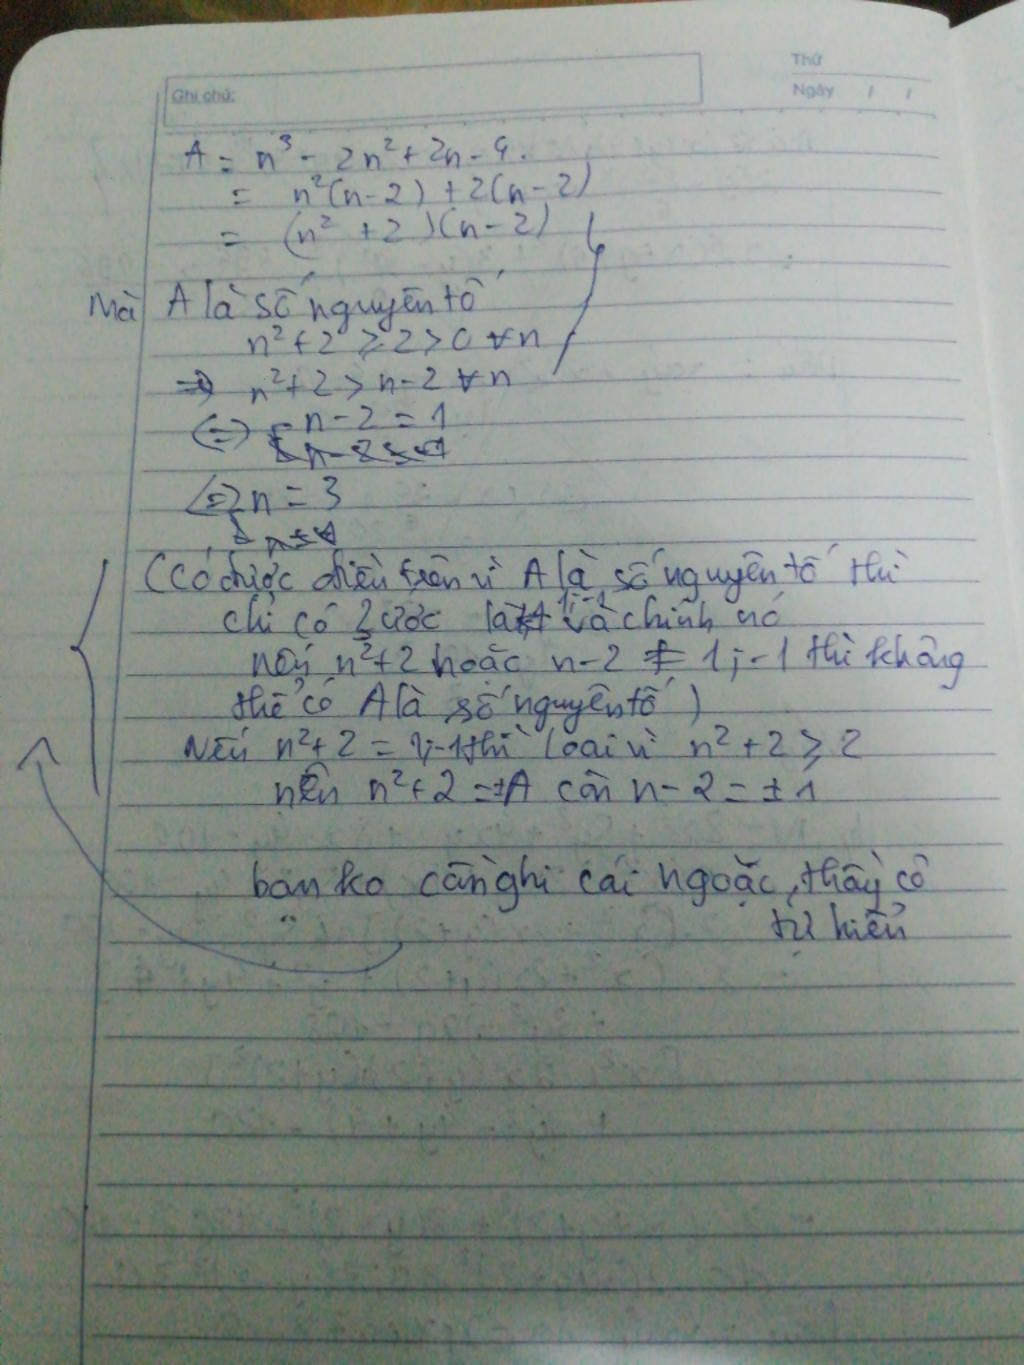 Thứ
Ghi chú:
Ngày / /
A = n³ - 2n² + 2n - 4.
= n²(n-2) + 2(n-2)
= (n² + 2)(n-2)
Mà A là số nguyên tố
n² + 2 ≥ 2 > 0 ∀n
=> n² + 2 > n-2 ∀n
<=> n-2 = 1
<=> n = 3
(Có được điều trên vì A là số nguyên tố thì
chỉ có 2 ước là 1;-1 và chính nó
nếu n²+2 hoặc n-2 ≠ 1;-1 thì không
thể có A là số nguyên tố)
Nếu n²+2 = 1;-1 thì loại vì n²+2 ≥ 2
nên n²+2 = ±A còn n-2 = ±1
bạn ko cần ghi cái ngoặc, thầy cô
tự hiểu